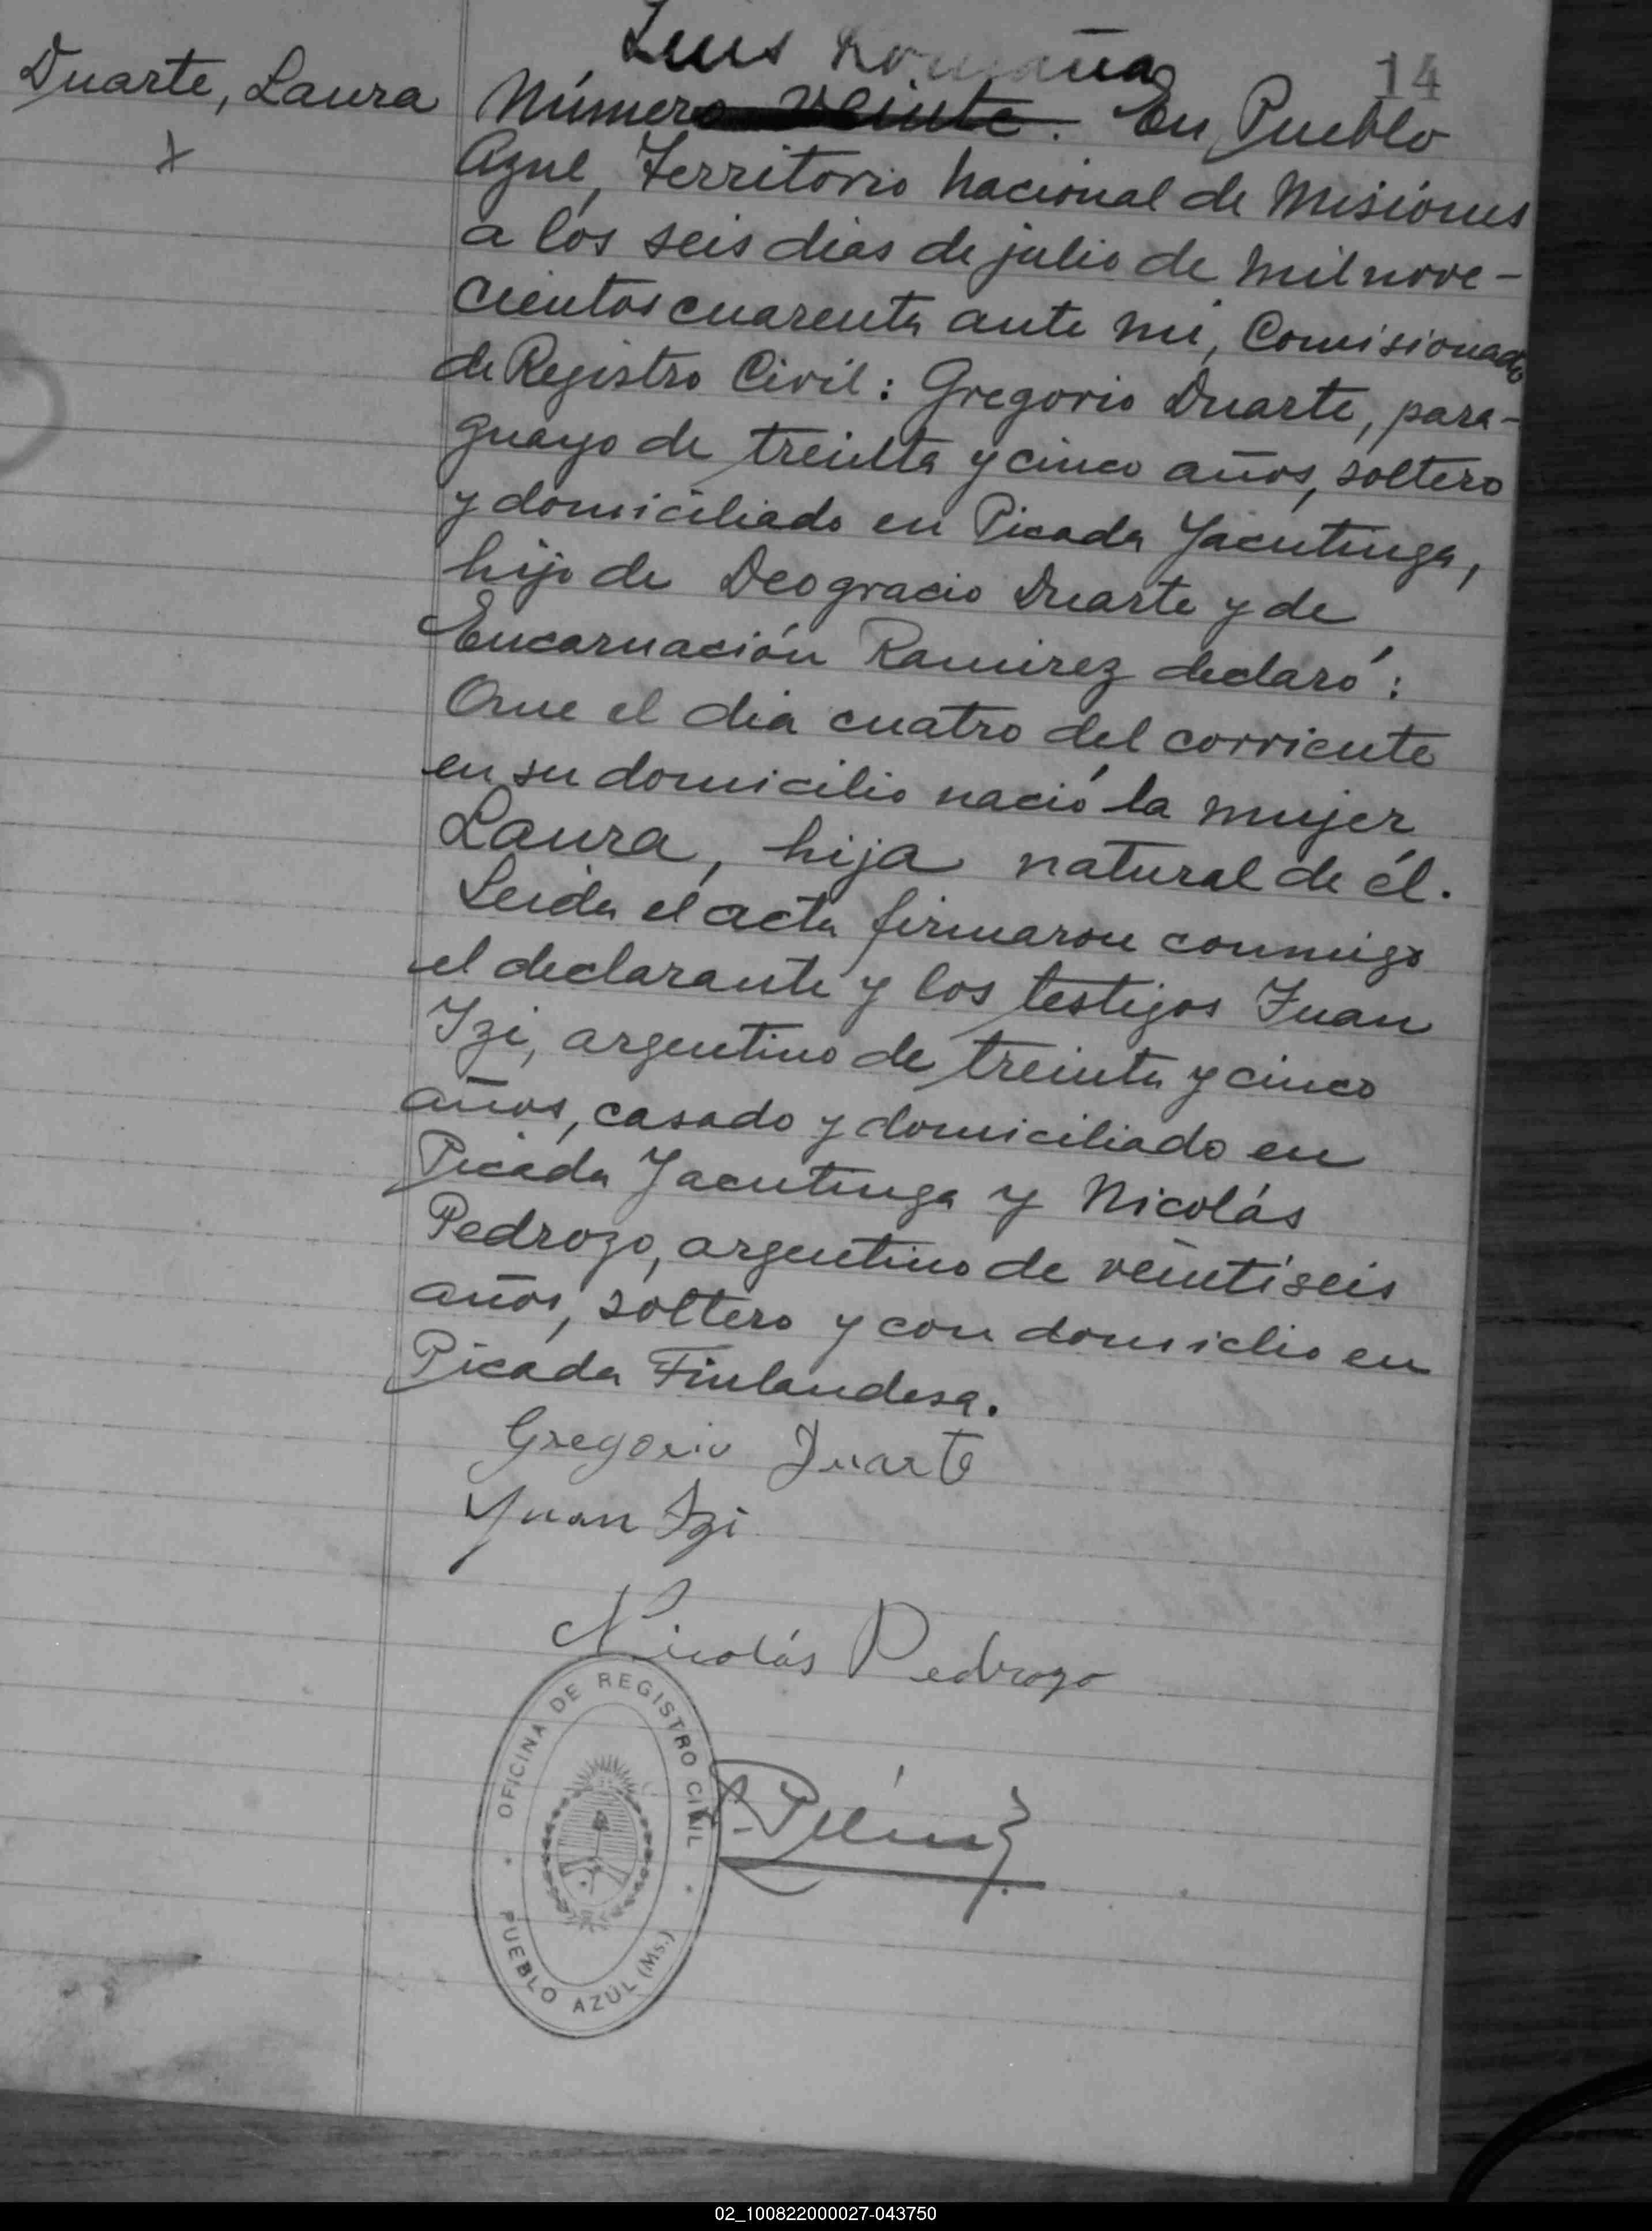 Luis Romaña
14
Duarte, Laura
x
Número Veinte. En Pueblo
Azul, Territorio Nacional de Misiones
a los seis dias de julio de mil nove-
cientos cuarenta ante mi, Comisionado
de Registro Civil: Gregorio Duarte, para-
guayo de treinta y cinco años, soltero
y domiciliado en Picada Yacutinga,
hijo de Deogracio Duarte y de
Encarnación Ramirez declaró:
Que el dia cuatro del corriente
en su domicilio nació la mujer
Laura, hija natural de él.
Leida el acta firmaron conmigo
el declarante y los testigos Juan
Izi, argentino de treinta y cinco
años, casado y domiciliado en
Picada Yacutinga y Nicolás
Pedrozo, argentino de veintiseis
años, soltero y con domiclio en
Picada Finlandesa.
Gregorio Duarte
Juan Izi
Nicolás Pedrozo
OFICINA DE REGISTRO CIVIL
PUEBLO AZUL (Ms.)
02_100822000027-043750